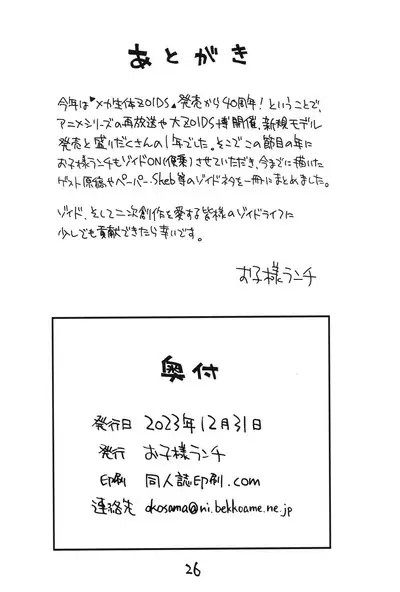 あとがき
今年は"メカ生体ZOIDS"発売から40周年!ということで、
アニメシリーズの再放送や大ZOIDS博開催、新規モデル
発売と盛りだくさんの1年でした。そこでこの節目の年に
お子様ランチもゾイドON(便乗)させていただき、今までに描いた
ゲスト原稿やペーパー、Skeb等のゾイドネタを一冊にまとめました。
ゾイド、そして二次創作を愛する皆様のゾイドライフに
少しでも貢献できたら幸いです。
お子様ランチ
奥付
発行日 2023年12月31日
発行 お子様ランチ
印刷 同人誌印刷.com
連絡先 okosama@ni.bekkoame.ne.jp
26